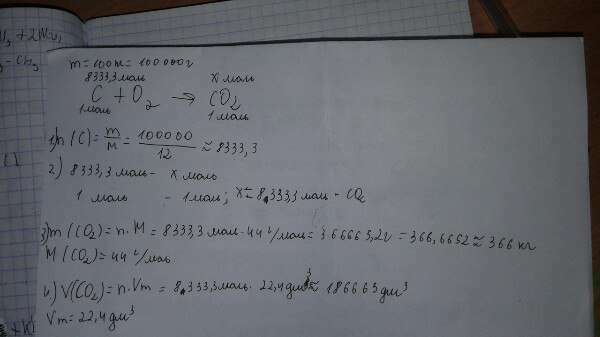 + 2M
m = 100кг = 100000г
8333,3 моль x моль
C + O₂ → CO₂
1 моль 1 моль
1) n(C) = m/M = 100000/12 ≈ 8333,3
2) 8333,3 моль - x моль
1 моль - 1 моль; x = 8333,3 моль - CO₂
3) m(CO₂) = n·M = 8333,3 моль · 44 г/моль = 366665,2г = 366,6652 ≈ 366 кг
M(CO₂) = 44 г/моль
4) V(CO₂) = n·Vm = 8333,3 моль · 22,4 дм³ ≈ 186665 дм³
Vm = 22,4 дм³